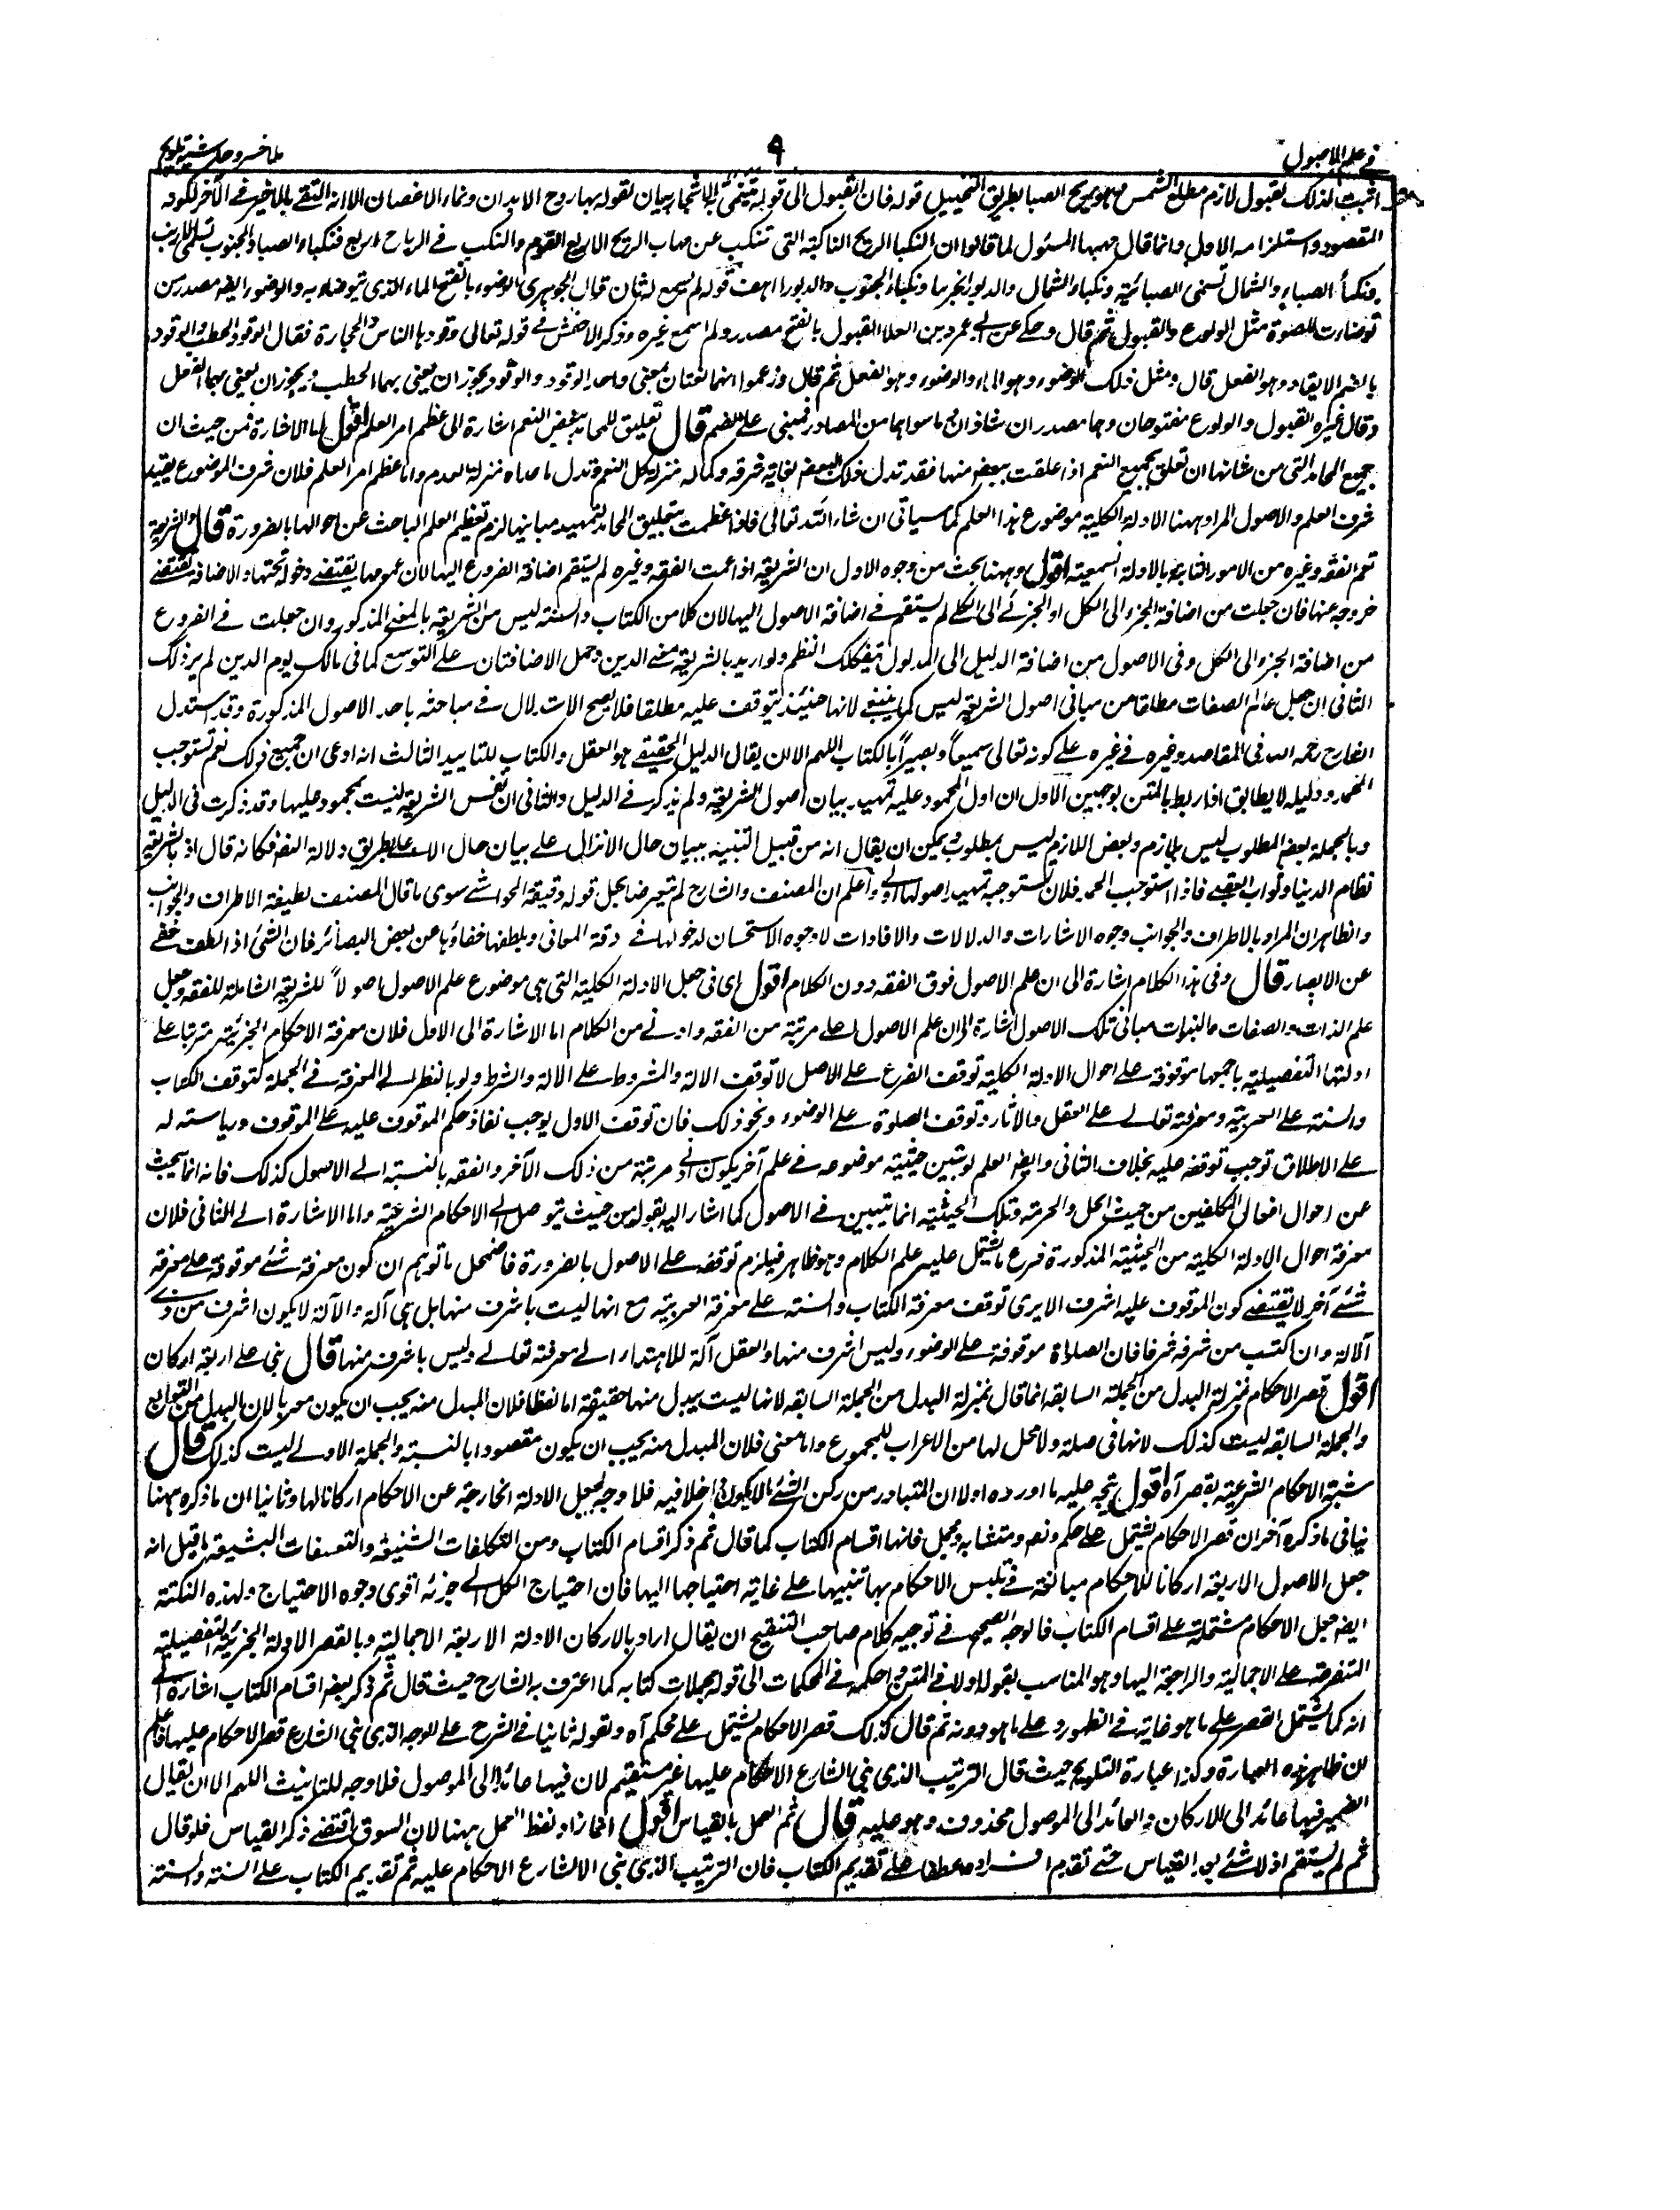 في علم الاصول
9
ملا خسرو حاشية تلويح
اثبت لذلك لقبول لازم مطلع الشمس مهبو بريح الصبا بطريق التخييل قوله فان القبول الى قوله تيغمى الاشجار بيان لقوله بها روح الابدان ونماء الاغصان الا انه اكتفى بالاخير في الآخر لكونه
المقصود واستلزامه الاول وانما قال مهبها المسئول لما قالوا ان النكباء الريح الناكبة التى تنكب عن مهاب الرياح الاربع القوم والنكب في الرياح اربع فنكباء الصبا والجنوب تسمى الازيب
ونكباء الصباء والشمال تسمى الصبائية ونكباء الشمال والدبور الجربيا ونكباء الجنوب والدبور الهيف قوله لم يسمع له ثان قال الجوهرى الوضوء بالفتح الماء الذى يتوضاء به والوضوء ايضا مصدر من
توضاءت للصلوة مثل الولوع والقبول ثم قال وحكى عن ابى عمرو بن العلاء القبول بالفتح مصدر ولم اسمع غيره وذكر الاخفش في قوله تعالى وقودها الناس والحجارة فقال الوقود الحطب والوقود
بالضم الايقاد وهو الفعل قال ومثل ذلك الوضوء وهو الماء والوضوء وهو الفعل ثم قال وزعموا انهما لغتان بمعنى واحد الوقود والوقود يجوز ان يعنى بهما الحطب ويجوز ان يعنى بهما الفعل
وقال غيره القبول والولوع مفتوحان وهما مصدران شاذان وما سواهما من المصادر فمبنى على الضم قال تعليق المحامد ببعض النعم اشارة الى عظم امر العلم اقول اما الاشارة فمن حيث ان
جميع المحامد التى من شانها ان تعلق بجميع النعم اذا علقت ببعض منها فقد تدل ذلك البعض لغاية شرفه وكماله منزلة كل النعم وتدل ما عداه منزلة العدم واما عظم امر العلم فلان شرف الموضوع يفيد
شرف العلم والاصول المراد ههنا الادلة الكلية موضوع هذا العلم كما سياتى ان شاء الله تعالى فاذا عظمت بتعليق المحامد لتمهيد مبانيها لزم تعظيم العلم الباحث عن احوالها بالضرورة قال والشريعة
تعم الفقه وغيره من الامور الثابتة بالادلة السمعية اقول وههنا بحث من وجوه الاول ان الشريعة اذا عمت الفقه وغيره لم يستقم اضافة الفروع اليها لان عمومها يقتضى دخوله تحتها والاضافة تقتضى
خروجه عنها فان جعلت من اضافة الجزء الى الكل او الجزئي الى الكلى لم يستقم في اضافة الاصول اليها لان كلا من الكتاب والسنة ليس من الشريعة بالمعنى المذكور وان جعلت في الفروع
من اضافة الجزء الى الكل وفى الاصول من اضافة الدليل الى المدلول تيفكلك النظم ولو اريد بالشريعة معنى الدين وحمل الاضافتان على التوسع كما فى مالك يوم الدين لم يرد ذلك
الثانى ان جعل علم الصفات مطلقا من مبانى اصول الشريعة ليس كما ينبغى لانها حينئذ تتوقف عليه مطلقا فلا يصح الاستدلال في مباحثه باحد الاصول المذكورة وقد استدل
الشارح رحمه الله فى المقاصد وغيره في غيره على كونه تعالى سميعاً وبصيراً بالكتاب اللهم الا ان يقال الدليل الحقيقى هو العقل والكتاب للتاييد الثالث انه ادعى ان جميع ذلك نعم تستوجب
الحمد ودليله لا يطابق اذا ربط بالمتن بوجهين الاول ان اول المحمود عليه تمهيد بيان اصول الشريعة ولم يذكر في الدليل والثانى ان نفس الشريعة ليست بمحمود عليها وقد ذكرت فى الدليل
وبالجملة بعض المطلوب ليس بلازم وبعض اللازم ليس بمطلوب ويمكن ان يقال انه من قبيل التنبيه ببيان حال الانزال على بيان حال الاعلى بطريق دلالة النص فكانه قال اذ بالشريعة
نظام الدنيا وثواب العقبى فاذا استوجب الحمد فلان تستوجبه تمهيد اصولها اولى واعلم ان المصنف والشارح لم يتعرضا بحل قوله دقيقة الحواشى سوى ما قال المصنف لطيفة الاطراف والجوانب
والظاهر ان المراد بالاطراف والجوانب وجوه الاشارات والدلالات والافادات لا وجوه الاستحسان لدخولها في دقة المعانى وبلطفها خفاؤها عن بعض البصائر فان الشئ اذا لطف خفى
عن الابصار قال وفى هذا الكلام اشارة الى ان علم الاصول فوق الفقه دون الكلام اقول اى فى جعل الادلة الكلية التى هى موضوع علم الاصول اصولاً للشريعة الشاملة للفقه وجعل
علم الذات والصفات والنبوات مبانى تلك الاصول اشارة الى ان علم الاصول اعلى مرتبة من الفقه وادنى من الكلام اما الاشارة الى الاول فلان معرفة الاحكام الجزئية مترتبا على
ادلتها التفصيلية باجمعها موقوفة على احوال الادلة الكلية توقف الفرع على الاصل لا توقف الالة والمشروط على الالة والشرط ولو بالنظر الى المعرفة في الجملة كتوقف الكتاب
والسنة على العربية ومعرفته تعالى على العقل والاثار وتوقف الصلوة على الوضوء ونحو ذلك فان توقف الاول يوجب نفاذ حكم الموقوف عليه على الموقوف ورياسته له
على الاطلاق توجب توقفه عليه بخلاف الثانى وايضا العلم لو تبين حيثية موضوعه في علم آخر يكون ادنى مرتبة من ذلك الآخر والفقه بالنسبة الى الاصول كذلك فانه انما يبحث
عن احوال افعال المكلفين من حيث الحل والحرمة وتلك الحيثية انما تتبين في الاصول كما اشار اليه بقوله من حيث يتوصل الى الاحكام الشرعية واما الاشارة الى الثانى فلان
معرفة احوال الادلة الكلية من الحيثية المذكورة فرع ما يشتمل عليه علم الكلام وهو ظاهر فيلزم توقفه على الاصول بالضرورة فاضمحل ما توهم ان كون معرفة شئ موقوفة على معرفة
شئ آخر لا يقتضى كون الموقوف عليه اشرف الا يرى توقف معرفة الكتاب والسنة على معرفة العربية مع انها ليست باشرف منها بل هى آلة والآلة لا يكون اشرف من ذى
الالة وان اكتسب من شرفه شرفا فان الصلاة موقوفة على الوضوء وليس اشرف منها والعقل آلة للاهتداء الى معرفته تعالى وليس باشرف منها قال بنى على اربعة اركان
اقول قصر الاحكام بمنزلة البدل من الجملة السابقة انما قال بمنزلة البدل من الجملة السابقة لانها ليست ببدل منها حقيقة اما لفظا فلان المبدل منه يجب ان يكون معربا لان البدل من التوابع
والجملة السابقة ليست كذلك لانها فى صلة ولا محل لها من الاعراب للمجموع واما معنى فلان المبدل منه يجب ان يكون مقصودا بالنسبة والجملة الاولى ليست كذلك قال
شبه الاحكام الشرعية بقصر آه اقول يتجه عليه ما اورده اولا ان المتبادر من ركن الشئ ما لا يكون الا داخلا فيه فلا وجه لجعل الادلة الخارجة عن الاحكام اركانا لها وثانيا ان ما ذكره ههنا
ينافى ما ذكره آخر ان قصر الاحكام يشتمل على حكم ونص ومتشابه ومجمل فانها اقسام الكتاب كما قال ثم ذكر اقسام الكتاب ومن التكلفات الشنيعة والتعسفات البشيعة ما قيل انه
جعل الاصول الاربعة اركانا للاحكام مبالغة في تلبس الاحكام بها تنبيها على غاية احتياجها اليها فان احتياج الكل الى جزئه اقوى وجوه الاحتياج ولهذه النكتة
ايضا جعل الاحكام مشتملة على اقسام الكتاب فالوجه الصحيح في توجيه كلام صاحب التنقيح ان يقال اراد بالاركان الادلة الاربعة الاجمالية وبالقصر الادلة الجزئية التفصيلية
المتفرعة على الاجمالية والراجعة اليها وهو المناسب بقوله اولا في المتن احكمه في المحكمات الى قوله مجملات كتابه كما اعترف به الشارح حيث قال ثم ذكر بعض اقسام الكتاب اشارة الى
انه كما يشتمل القصر على ما هو غاية في الظهور وعلى ما هو دونه ثم قال كذلك قصر الاحكام يشتمل على محكم آه وبقوله ثانيا في الشرح على الوجه الذى بنى الشارع قصر الاحكام عليها واعلم
ان ظاهر هذه العبارة وكذا عبارة التلويح حيث قال الترتيب الذى بنى الشارع الاحكام عليها غير مستقيم لان فيها عائدا الى الموصول فلا وجه للتانيث اللهم الا ان يقال
الضمير فيها عائد الى الاركان والعائد الى الموصول محذوف وهو عليه قال ثم العمل بالقياس اقول انما زاد لفظ العمل ههنا لان السوق اقتضى ذكر القياس فلو قال
ثم لم يستقم اذ لا شئ بعد القياس حتى تقدم عطفا على تقديم الكتاب فان الترتيب الذى بنى الشارع الاحكام عليه ثم تقديم الكتاب على السنة والسنة